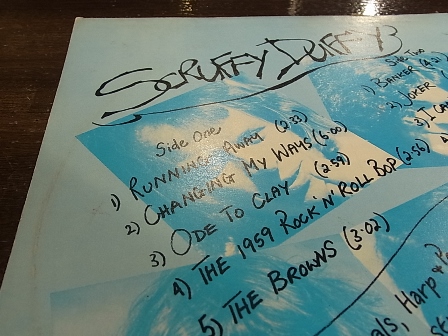 SCRUFFY DUFFY
Side One
1) RUNNING AWAY (2:33)
2) CHANGING MY WAYS (6:00)
3) ODE TO CLAY (2:59)
4) THE 1959 ROCK 'N' ROLL BOP (2:56)
5) THE BROWNS (3:02)
Side Two
1) BANKER
2) JOKER
3) I
Harp